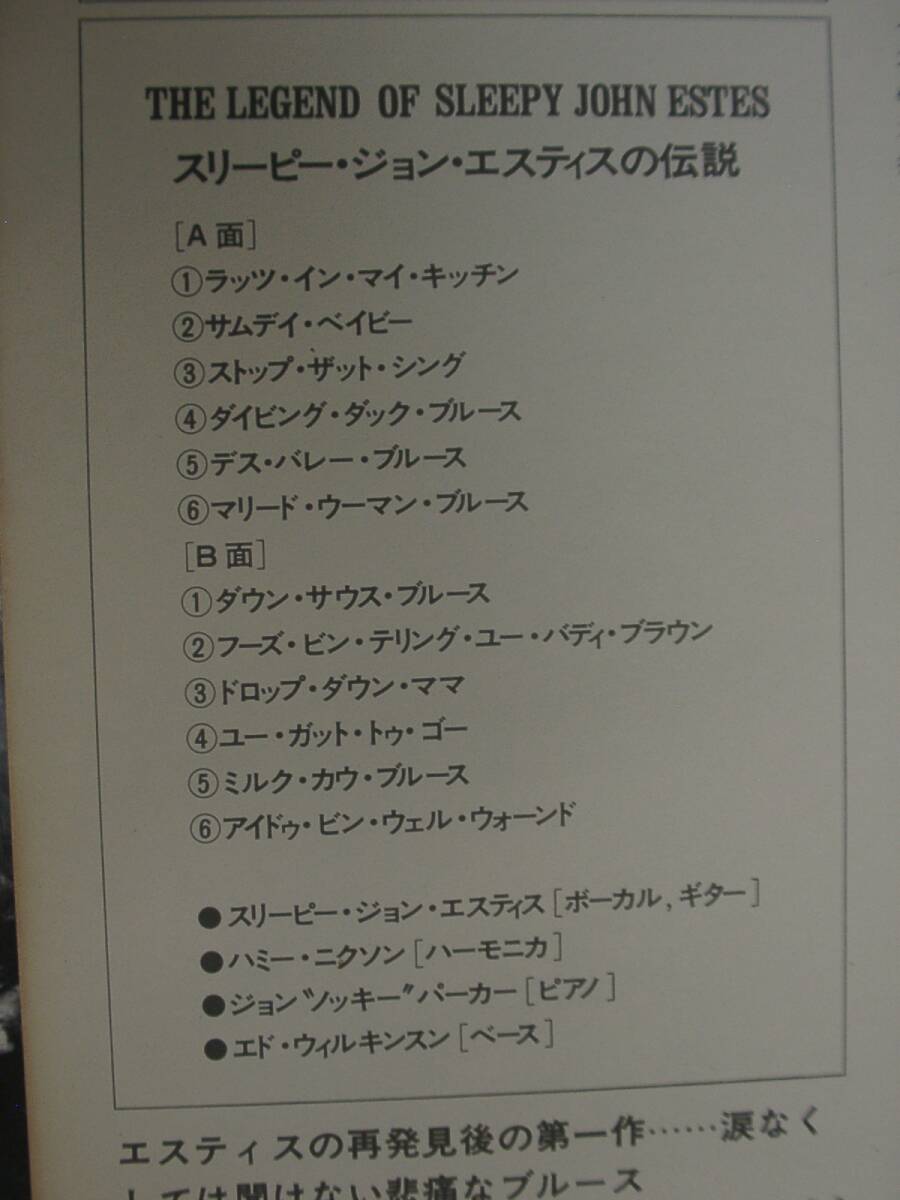 THE LEGEND OF SLEEPY JOHN ESTES
スリーピー・ジョン・エスティスの伝説
[A面]
①ラッツ・イン・マイ・キッチン
②サムデイ・ベイビー
③ストップ・ザット・シング
④ダイビング・ダック・ブルース
⑤デス・バレー・ブルース
⑥マリード・ウーマン・ブルース
[B面]
①ダウン・サウス・ブルース
②フーズ・ビン・テリング・ユー・バディ・ブラウン
③ドロップ・ダウン・ママ
④ユー・ガット・トゥ・ゴー
⑤ミルク・カウ・ブルース
⑥アイドゥ・ビン・ウェル・ウォーンド
●スリーピー・ジョン・エスティス[ボーカル,ギター]
●ハミー・ニクソン[ハーモニカ]
●ジョン〝ノッキー〟パーカー[ピアノ]
●エド・ウィルキンスン[ベース]
エスティスの再発見後の第一作……涙なく
しては聞けない悲痛なブルース